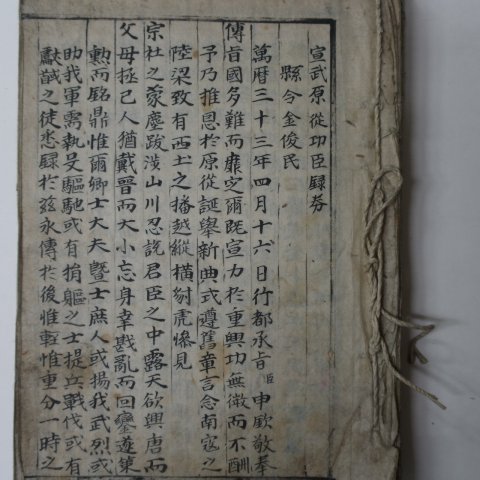 宣武原從功臣錄券
縣令金俊民
萬曆三十三年四月十六日行都承旨臣申欽敬奉
傳旨國多難而靡定爾旣宣力於重興功無微而不酬
予乃推恩於原從誕擧新典式遵舊章言念南寇之
陸梁致有西土之播越縱橫豺虎慘見
宗社之蒙塵跋涉山川忍說君臣之中露天欲興唐而
父母拯己人猶戴晉而大小忘身幸戡亂而回鑾遂策
勳而銘鼎惟爾卿士大夫曁士庶人或揚我武烈或
助我軍需執殳驅馳或有捐軀之士提兵戰伐或有
獻馘之徒悉錄於玆永傳於後惟輕惟重分一時之